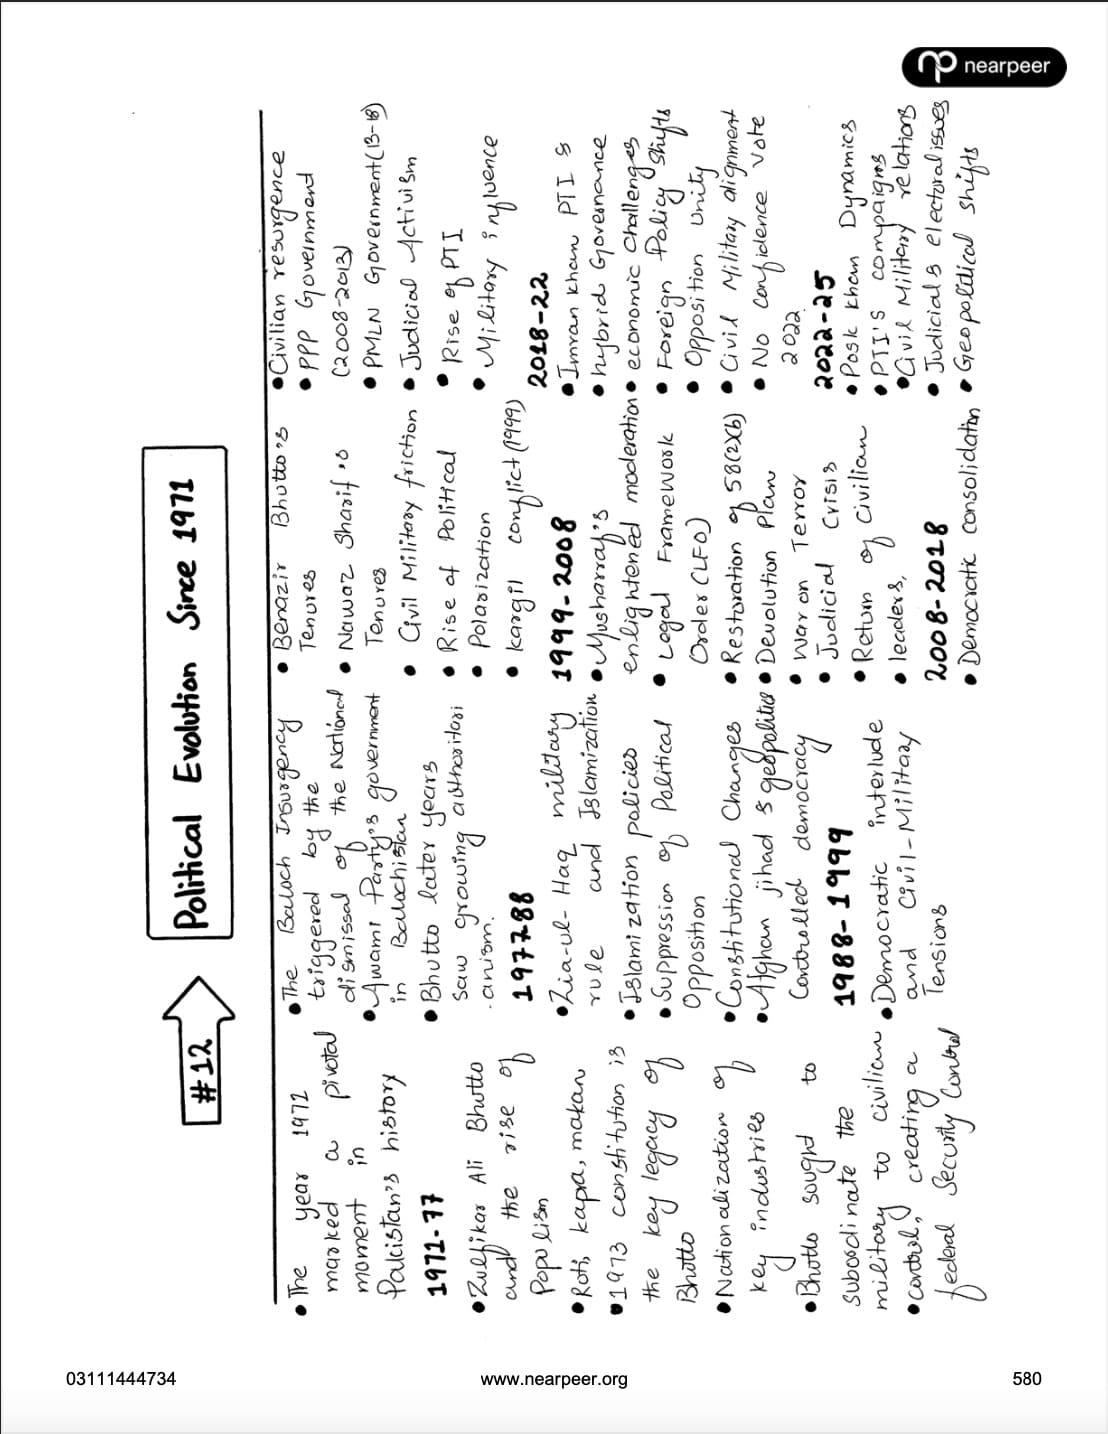 nearpeer
#12
Political Evolution Since 1971
• The year 1971
marked a pivotal
moment in
Pakistan's history
1971-77
• Zulfikar Ali Bhutto
and the rise of
Populism
• Roti, kapra, makan
• 1973 constitution is
the key legacy of
Bhutto
• Nationalization of
key industries
• Bhutto sought to
subordinate the
military to civilian
• control, creating a
federal Security Control
• The Baloch Insurgency
triggered by the
dismissal of the National
• Awami Party's government
in Balochistan
• Bhutto later years
saw growing authoritari
-anism.
197788
• Zia-ul-Haq military
rule and Islamization
• Islamization policies
• Suppression of Political
Opposition
• Constitutional Changes
• Afghan jihad & geopolitics
Controlled democracy
1988-1999
• Democratic interlude
and Civil-Military
Tensions
• Benazir Bhutto's
Tenures
• Nawaz Sharif's
Tenures
• Civil Military friction
• Rise of Political
• Polarization
• Kargil conflict (1999)
1999-2008
• Musharraf's
enlightened moderation
• Legal Framework
Order (LFO)
• Restoration of 58(2)(b)
• Devolution Plan
• War on Terror
• Judicial Crisis
• Return of Civilian
• leaders,
2008-2018
• Democratic consolidation
• Civilian resurgence
• PPP Government
(2008-2013)
• PMLN Government (13-18)
• Judicial Activism
• Rise of PTI
• Military influence
2018-22
• Imran Khan PTI &
• hybrid Governance
• economic challenges
• Foreign Policy Shifts
• Opposition Unity
• Civil Military alignment
• No Confidence Vote
2022
2022-25
• Posk Khan Dynamics
• PTI'S compaigns
• Civil Military relations
• Judicial & electoral issues
• Geopolitical shifts
03111444734
www.nearpeer.org
580